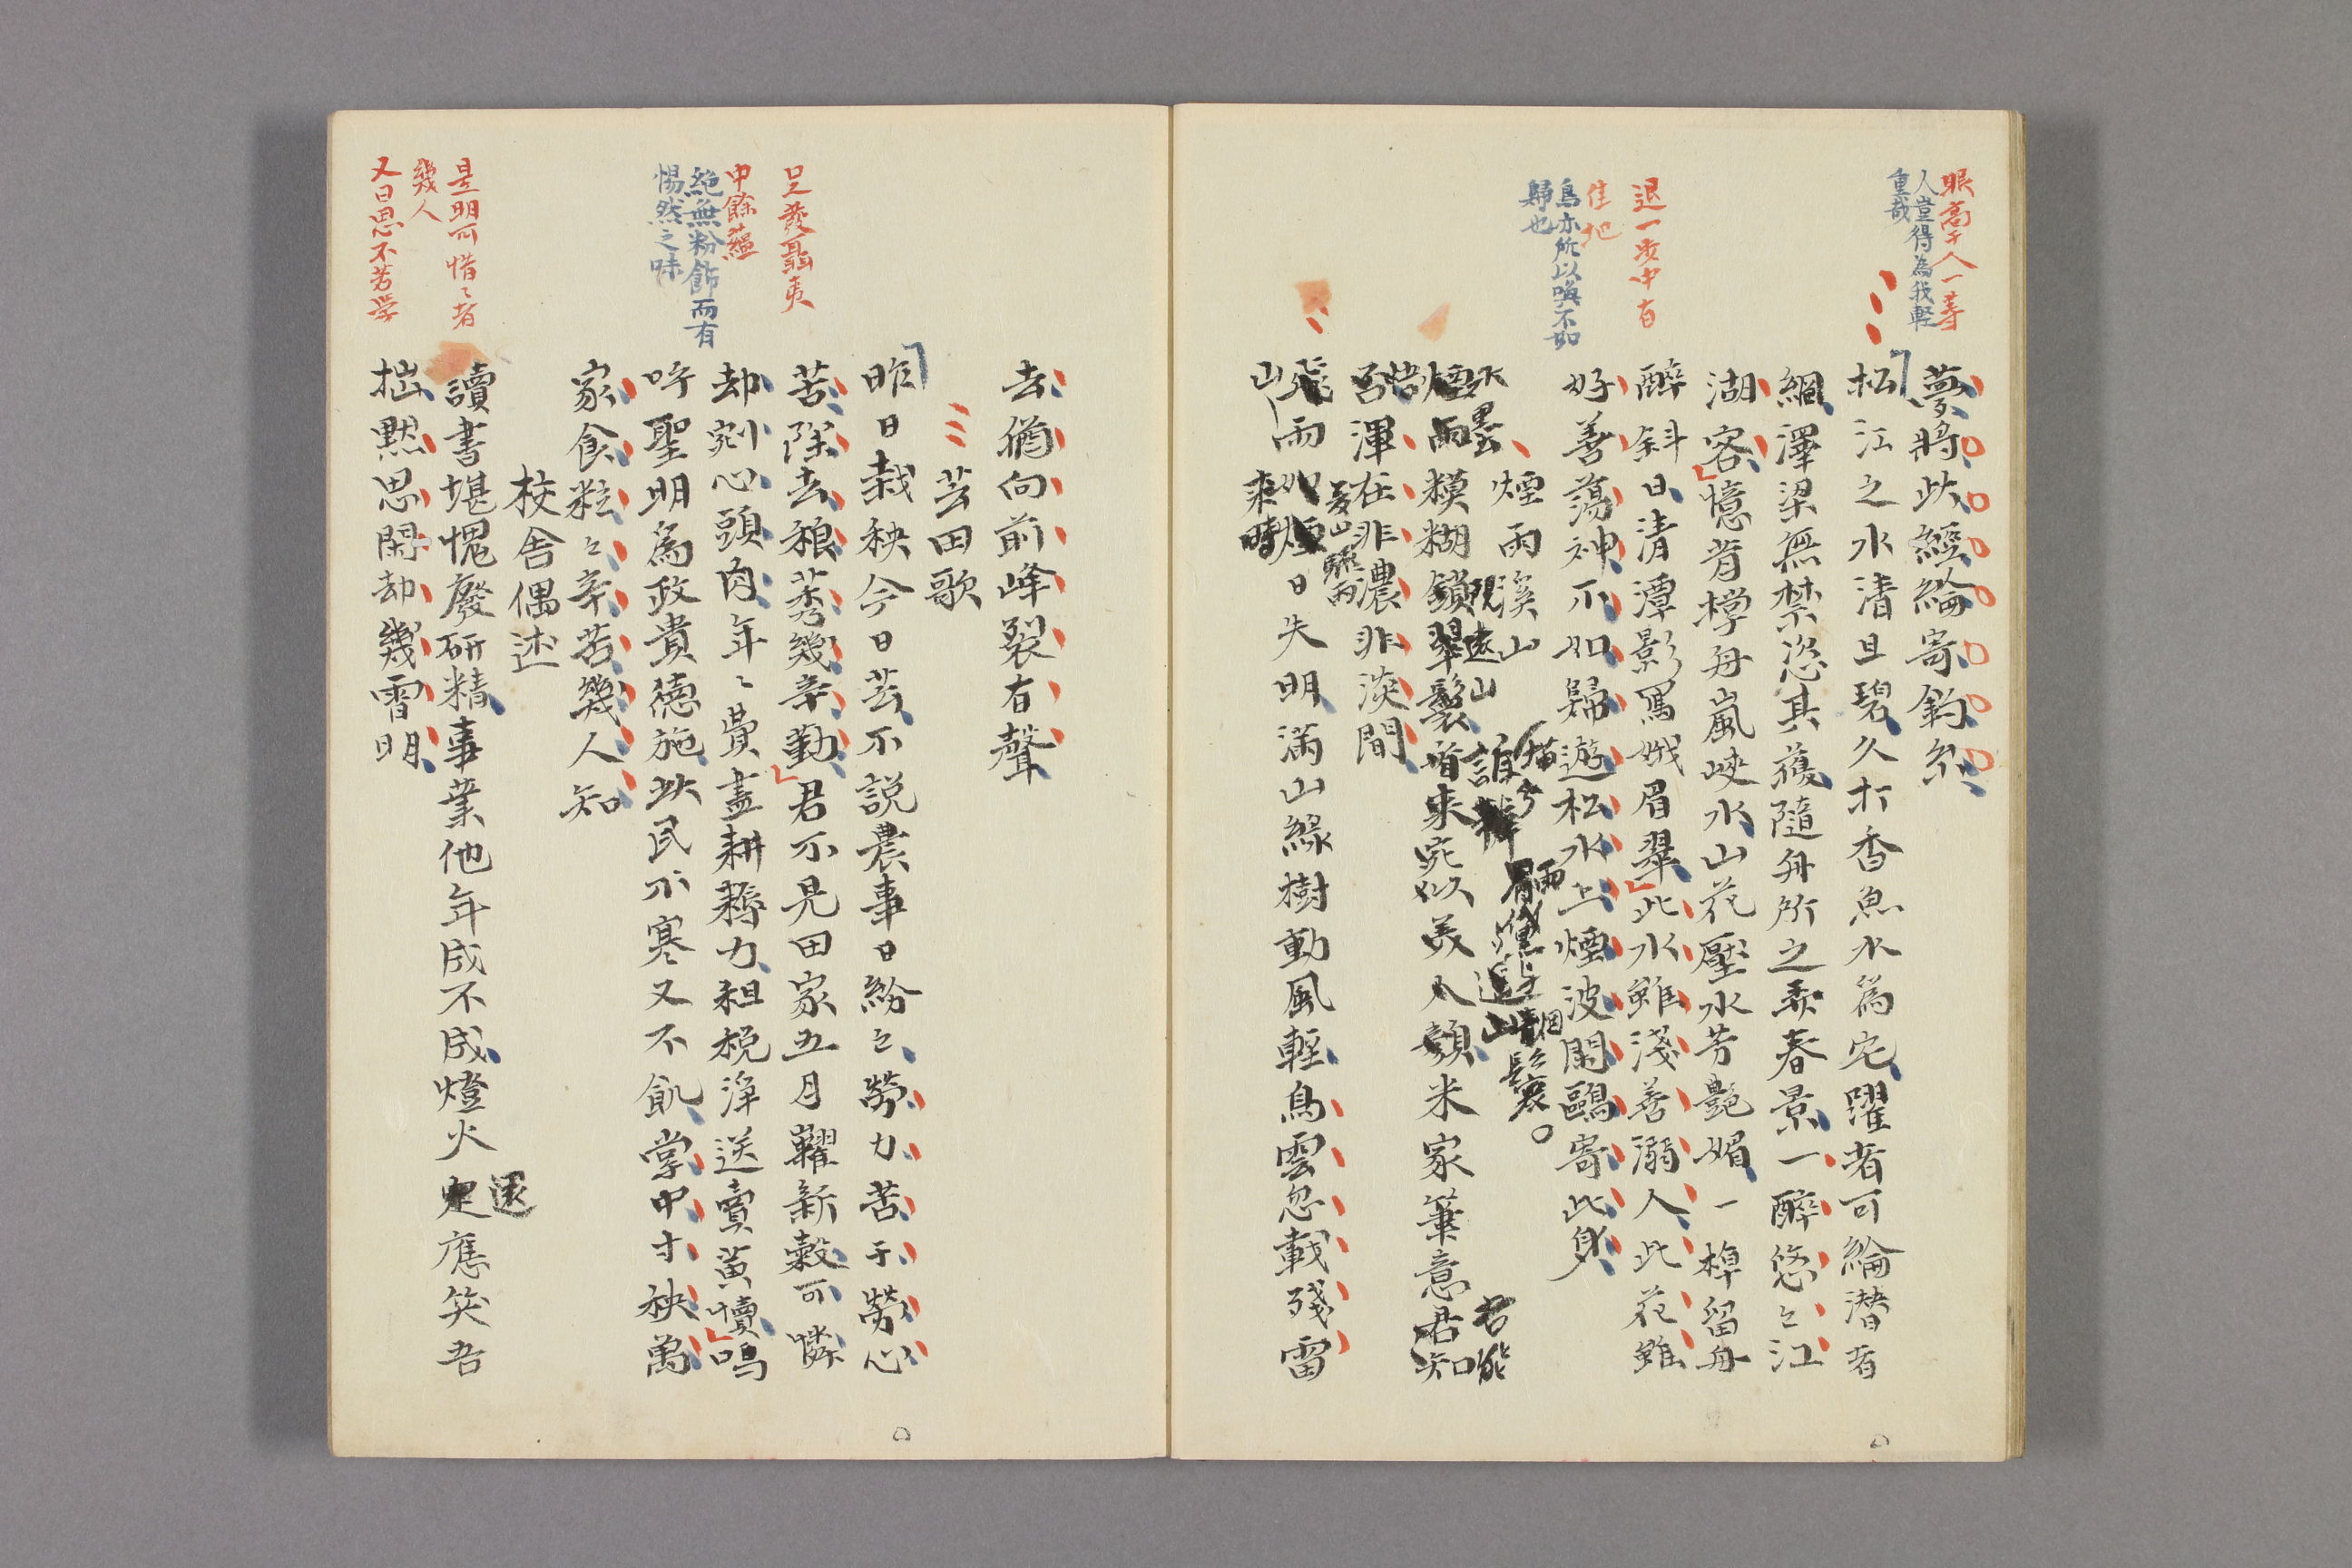 眼高千人一等
人豈得為我軽
重哉
夢將此經綸寄釣糸
松江之水清且碧久打香魚水為宅躍者可綸潜者
網澤梁無禁恣其獲隨舟所之乗春景一醉悠々江
湖客憶昔樗舟嵐峽水山花壓水芳艶媚一棹留舟
退一歩中有
佳地
醉斜日清潭影罵娥眉翠此水雖淺善溺人此花雖
鳥亦所以喚不如
歸也
好善蕩神不如歸遊松水上煙波閑鷗寄此身
煙雨溪山
水墨
遠山
煙雨糢糊鎖翠鬟看来宛似美人顏米家筆意君知
君能
否渾在非濃非淡間
夏山驟雨
飛雨如煙日失明滿山緑樹動風輕鳥雲忽載殘雷
山雨
来時
去猶向前峰裂有聲
芸田歌
昨日栽秧今日芸不説農事日紛々勞力苦于勞心
足發聾
苦除去稂莠幾辛勤君不見田家五月糶新穀可憐
中餘蘊
却剜心頭肉年々費盡耕耨力租税淨送賣黄犢嗚
絶無粉飾而有
惕然之味
呼聖明為政貴徳施此民不寒又不飢掌中寸秧萬
家食粒々辛苦幾人知
校舎偶述
是明可惜々者
幾人
讀書堪愧廢研精事業他年成不成燈火還應笑吾
又曰思不若学
拙黙思閑却幾宵明